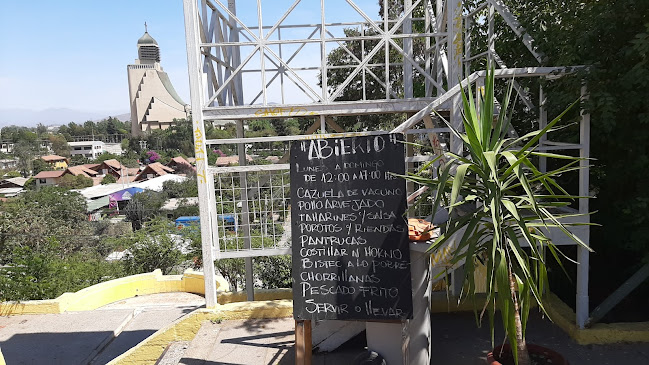 "ABiERTO"
LUNES A DOMINGO
DE 12:00 A 17:00 HRS
CAZUELA DE VACUNO
POLLO ARVEJADO
TALLARINES Y SALSA
POROTOS Y RIENDAS
PANTRUCAS
COSTILLAR N HORNO
BISTEC A LO POBRE
CHORRILLANAS
PESCADO FRITO
SERVIR O LLEVAR